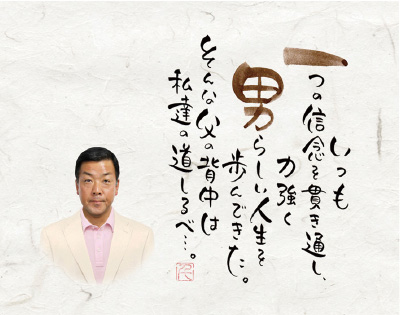 いつも
一つの信念を貫き通し、
力強く
男らしい人生を
歩んできた。
そんな父の背中は
私達の道しるべ…。